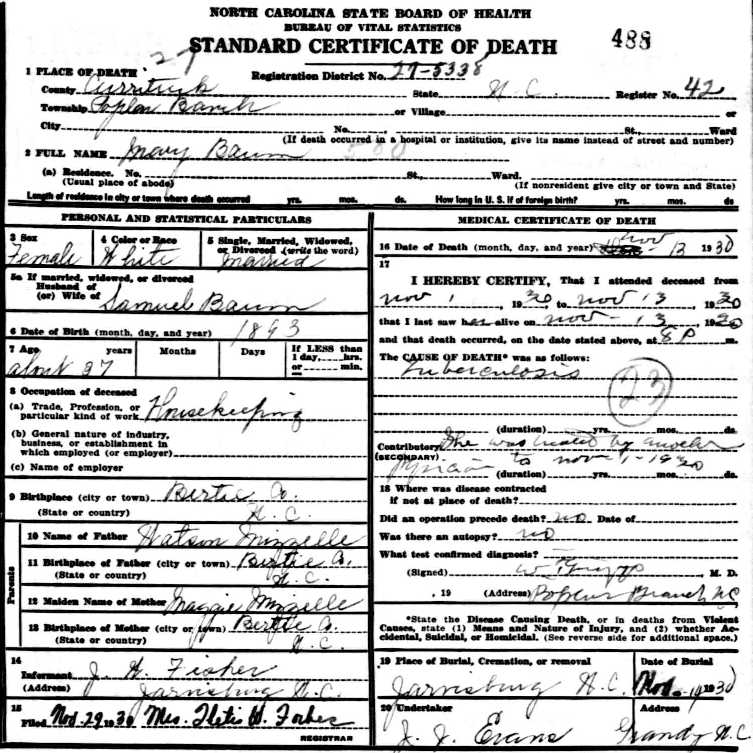 NORTH CAROLINA STATE BOARD OF HEALTH
BUREAU OF VITAL STATISTICS
STANDARD CERTIFICATE OF DEATH
488
27
1 PLACE OF DEATH
Registration District No. 27-5338
County Currituck State N.C. Register No. 42
Township Poplar Branch or Village or
City No. St., Ward
(If death occurred in a hospital or institution, give its name instead of street and number)
2 FULL NAME Mary Baum
(a) Residence. No. St., Ward.
(Usual place of abode) (If nonresident give city or town and State)
Length of residence in city or town where death occurred yrs. mos. ds. How long in U. S. if of foreign birth? yrs. mos. ds
PERSONAL AND STATISTICAL PARTICULARS
3 Sex 4 Color or Race 5 Single, Married, Widowed, or Divorced (write the word)
Female White Married
5a If married, widowed, or divorced
Husband of
(or) Wife of Samuel Baum
6 Date of Birth (month, day, and year) 1893
7 Age years Months Days If LESS than 1 day, hrs. or min.
about 37
8 Occupation of deceased
(a) Trade, Profession, or particular kind of work Housekeeping
(b) General nature of industry, business, or establishment in which employed (or employer)
(c) Name of employer
9 Birthplace (city or town) Bertie Co.
(State or country) N.C.
Parents
10 Name of Father Watson Mizzelle
11 Birthplace of Father (city or town) Bertie Co.
(State or country) N.C.
12 Maiden Name of Mother Maggie Mizzelle
13 Birthplace of Mother (city or town) Bertie Co.
(State or country) N.C.
14
Informant J. H. Fisher
(Address) Jarvisburg N.C.
15
Filed Nov. 29 1930 Mrs. H. Forbes
REGISTRAR
MEDICAL CERTIFICATE OF DEATH
16 Date of Death (month, day, and year) Nov 13 1930
17
I HEREBY CERTIFY, That I attended deceased from
Nov 1, 1930 to Nov 13, 1930
that I last saw her alive on Nov - 13, 1930
and that death occurred, on the date stated above, at 8 P m.
The CAUSE OF DEATH* was as follows:
Tuberculosis
23
(duration) yrs. mos. ds.
Contributory She was treated by another
(SECONDARY) to Nov 1 - 1930
(duration) yrs. mos. ds.
18 Where was disease contracted
if not at place of death?
Did an operation precede death? no Date of
Was there an autopsy? no
What test confirmed diagnosis?
(Signed) W T Griggs M. D.
, 19 (Address) Poplar Branch NC
*State the Disease Causing Death, or in deaths from Violent Causes, state (1) Means and Nature of Injury, and (2) whether Accidental, Suicidal, or Homicidal. (See reverse side for additional space.)
19 Place of Burial, Cremation, or removal Date of Burial
Jarvisburg N.C. Nov. 14 1930
20 Undertaker Address
J. J. Evans Grandy N.C.